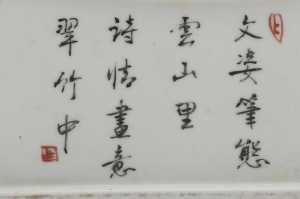 文姿筆態
雲山里
詩情畫意
翠竹中